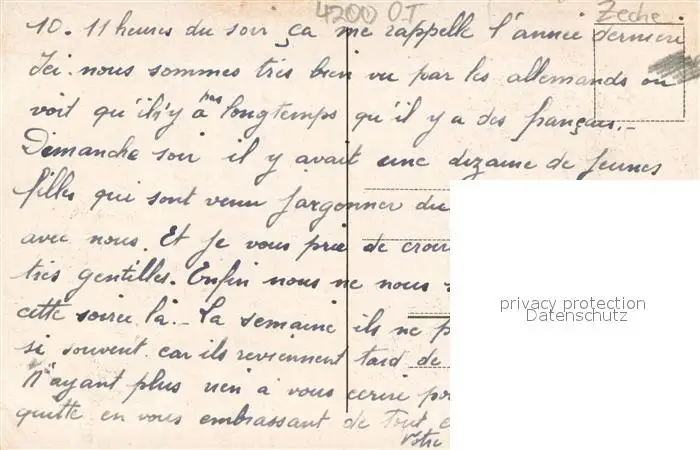 4200 O.T Zeche
10. 11 heures du soir ça me rappelle l'année dernière
Ici nous sommes très bien vu par les allemands on
voit qu'il n'y a pas longtemps qu'il y a des français.-
Dimanche soir il y avait une dizaine de jeunes
filles qui sont venu jargonner du
avec nous. Et je vous prie de croi
très gentilles. Enfin nous ne nous
cette soirée là.- La semaine ils ne p
si souvent car ils reviennent tard de
N'ayant plus rien à vous écrire po
quitte en vous embrassant de tout c
Votre
privacy protection
Datenschutz